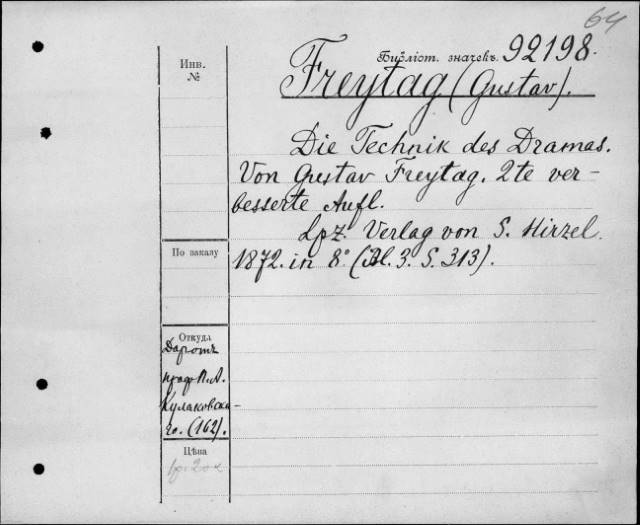 64
Библіот. значекъ 92198.
Инв.
№
Freytag (Gustav).
Die Technik des Dramas.
Von Gustav Freytag. 2te ver-
besserte Aufl.
Lpz. Verlag von S. Hirzel.
1872. in 8° (Bl. 3. S. 313).
По заказу
Откуда
Даромъ
проф. П. А.
Кулаковска-
го. (162).
Цѣна
1р. 20к